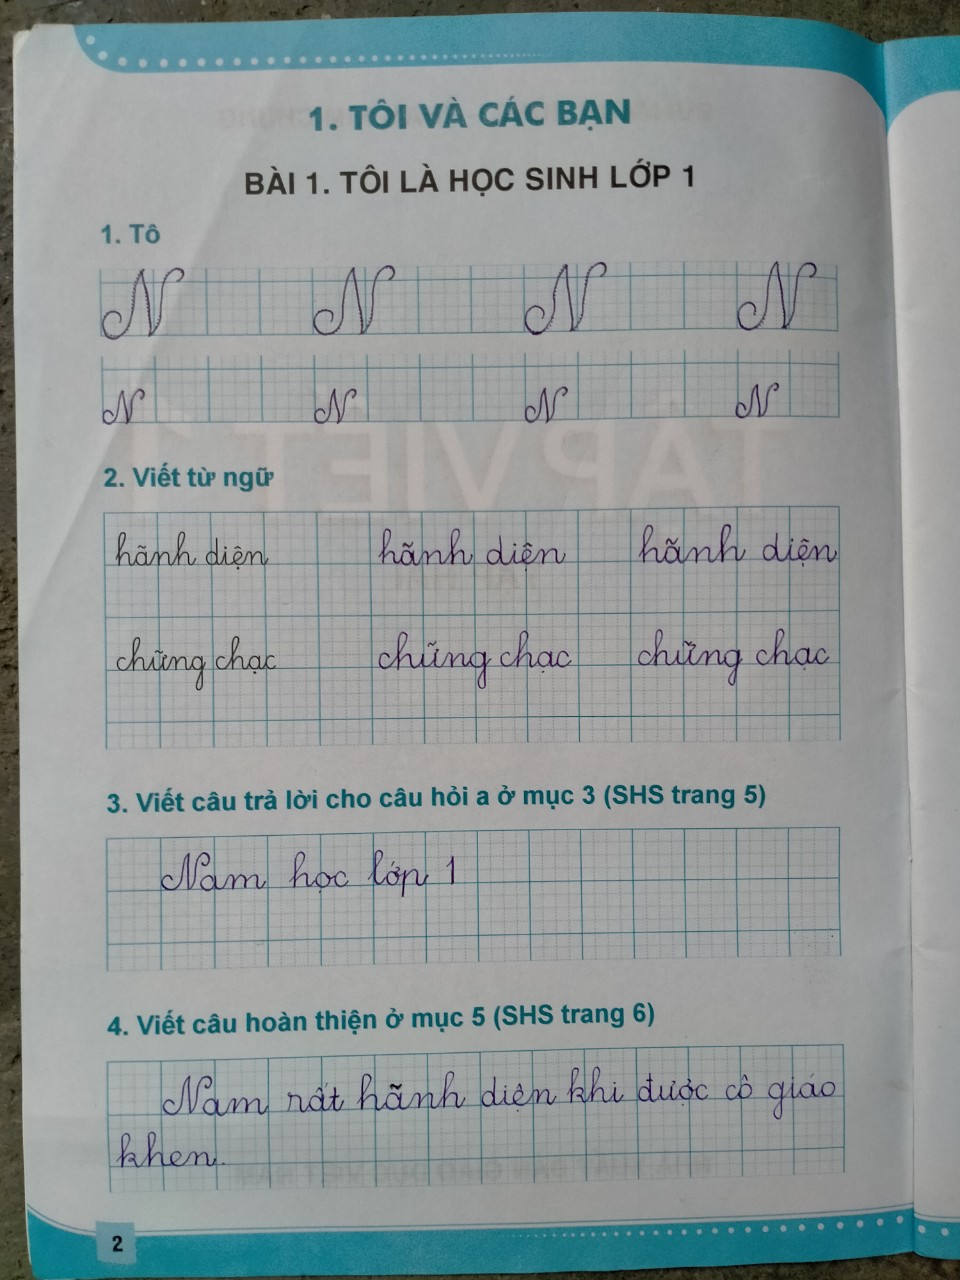 1. TÔI VÀ CÁC BẠN
BÀI 1. TÔI LÀ HỌC SINH LỚP 1
1. Tô
N N N N
N N N N
2. Viết từ ngữ
hãnh diện hãnh diện hãnh diện
chững chạc chững chạc chững chạc
3. Viết câu trả lời cho câu hỏi a ở mục 3 (SHS trang 5)
Nam học lớp 1
4. Viết câu hoàn thiện ở mục 5 (SHS trang 6)
Nam rất hãnh diện khi được cô giáo
khen.
2